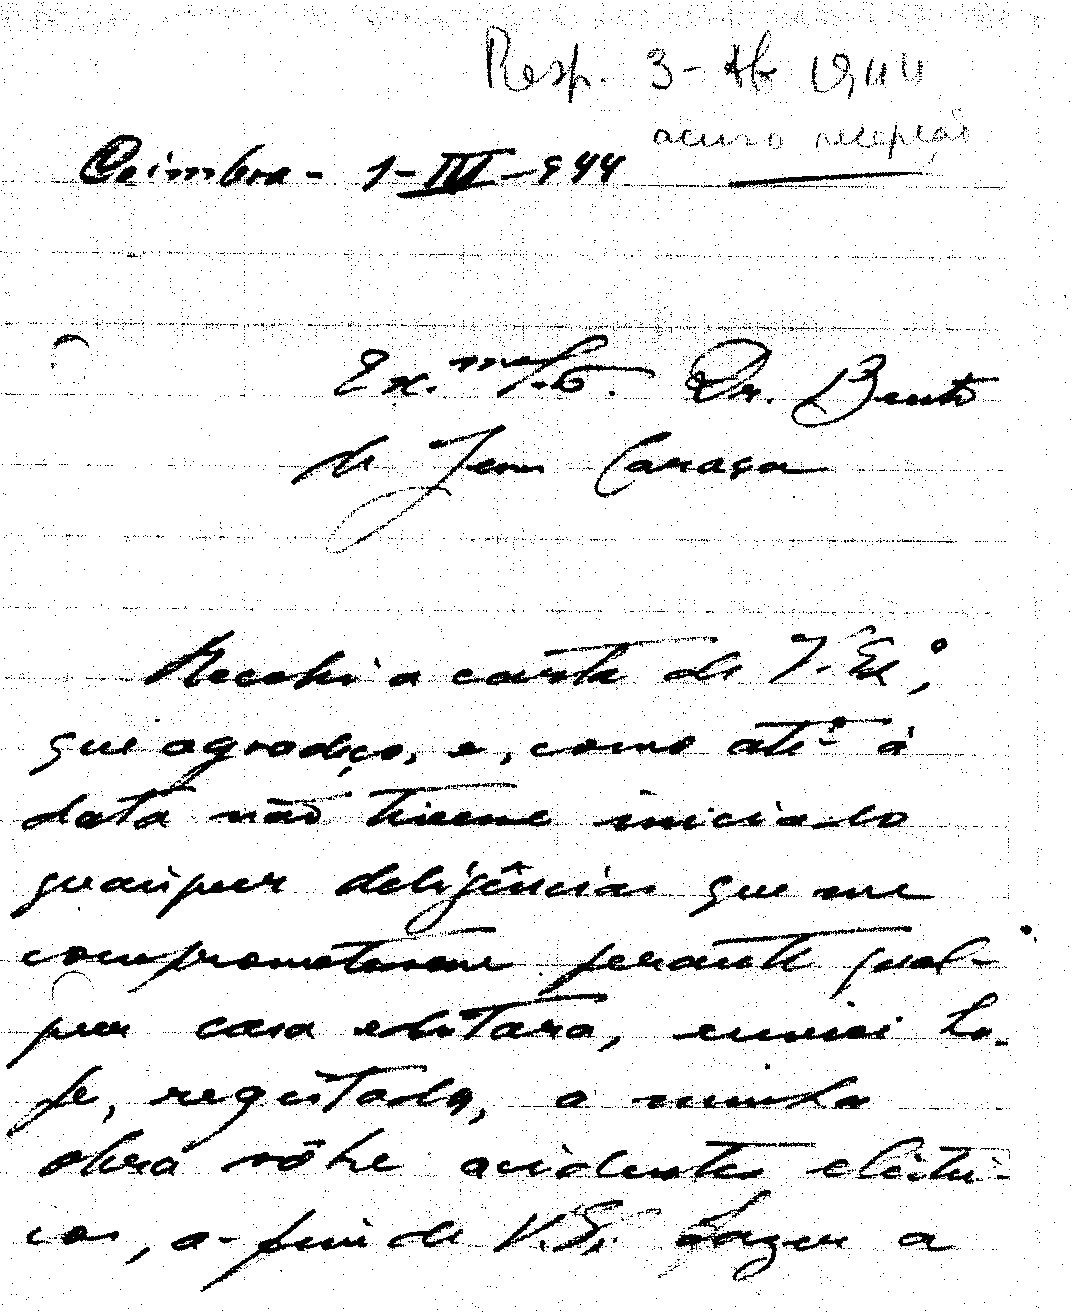 Resp. 3-Ab 1944
acuso recepção
Coimbra - 1-IV-944
Ex.mo S.or Dr. Bento
de Jesus Caraça
Recebi a carta de V. Ex.ª,
que agradeço, e, como até á
data não tivesse iniciado
quaisquer deligências que me
comprometessem perante qual-
quer casa editora, enviei ho-
je, registada, a minha
obra sôbre acidentes eléctri-
cos, a-fim de V. Ex. fazer a